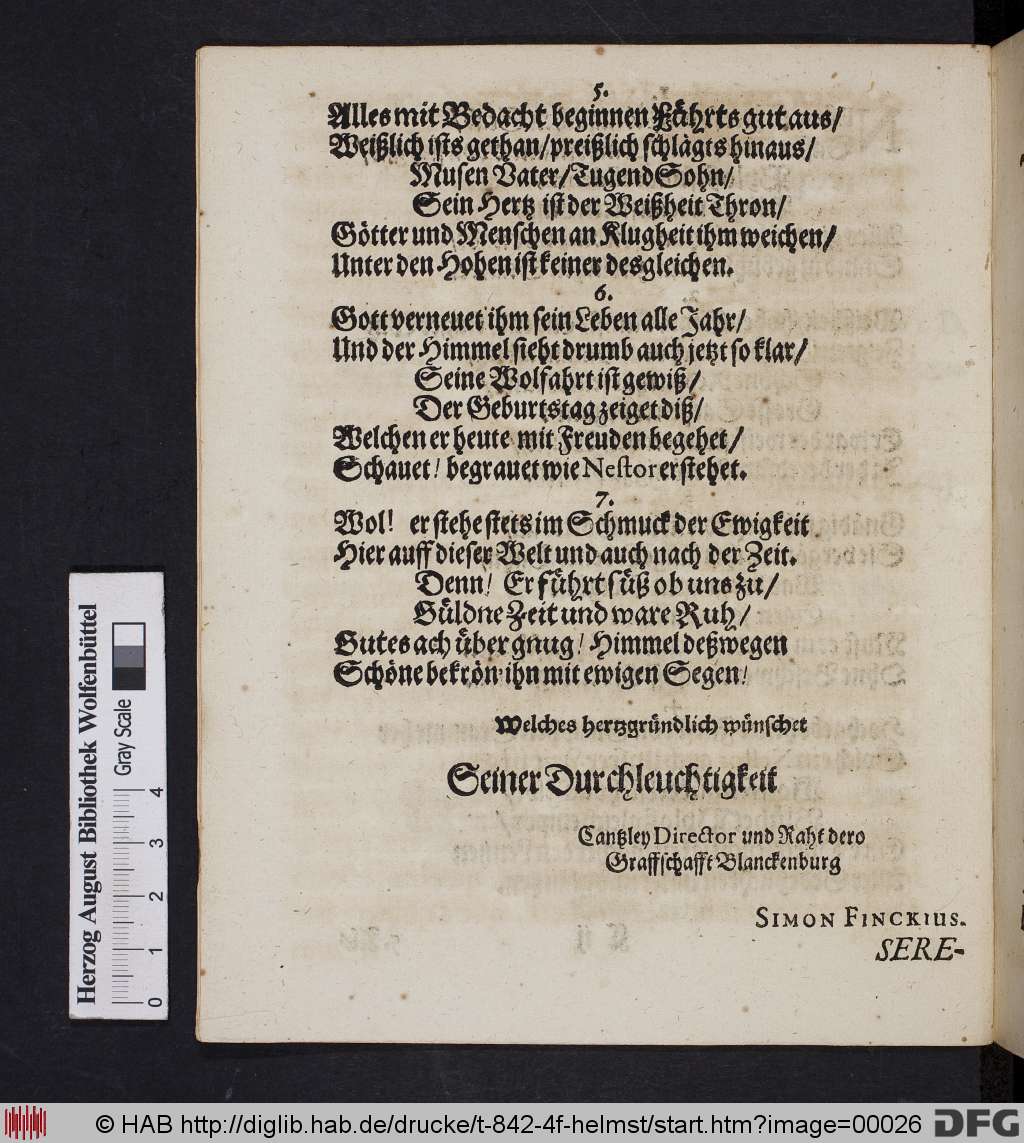 5.
Alles mit Bedacht beginnen Fährts gut aus/
Weißlich ists gethan/preißlich schlägts hinaus/
Musen Vater/Tugend Sohn/
Sein Hertz ist der Weißheit Thron/
Götter und Menschen an Klugheit ihm weichen/
Unter den Hohen ist keiner desgleichen.
6.
Gott verneuet ihm sein Leben alle Jahr/
Und der Himmel sieht drumb auch jetzt so klar/
Seine Wolfahrt ist gewiß/
Der Geburtstag zeiget diß/
Welchen er heute mit Freuden begehet/
Schauet! begrauet wie Nestor erstehet.
7.
Wol! er stehe stets im Schmuck der Ewigkeit
Hier auff dieser Welt und auch nach der Zeit.
Denn! Er führt süß ob uns zu/
Güldne Zeit und ware Ruh/
Gutes ach über gnug! Himmel deßwegen
Schöne bekrön' ihn mit ewigen Segen!
Welches hertzgründlich wünschet
Seiner Durchleuchtigkeit
Cantzley Director und Raht dero
Graffschafft Blanckenburg
SIMON FINCKIUS.
SERE-
Herzog August Bibliothek Wolfenbüttel
Gray Scale
0 1 2 3 4
© HAB http://diglib.hab.de/drucke/t-842-4f-helmst/start.htm?image=00026
DFG